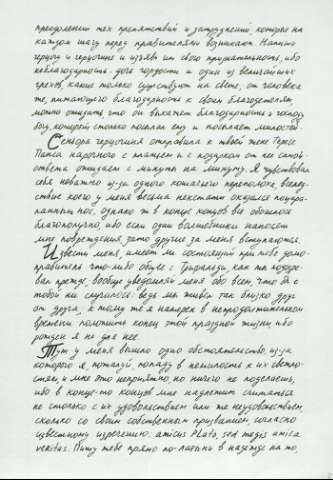 преодолении тех препятствий и затруднений, которые на
каждом шагу перед правителями возникают. Напиши
герцогу и герцогине и изъяви им свою признательность, ибо
неблагодарность - дочь гордости и один из величайших
грехов, какие только существуют на свете, от человека
же, питающего благодарность к своим благодетелям,
можно ожидать что он выкажет благодарность и господу
богу, который столько послал ему и посылает милостей.
Сеньора герцогиня отправила к твоей жене Тересе
Панса нарочного с платьем и с подарком от нее самой
ответа ожидаем с минуты на минуту. Я чувствовал
себя неважно из-за одного кошачьего переполоха, вслед-
ствие коего у меня весьма некстати оказался поцара-
панным нос, однако ж в конце концов все обошлось
благополучно, ибо если одни волшебники наносят
мне повреждения, зато другие за меня вступаются.
Извести меня, имеет ли состоящий при тебе домо-
правитель что-либо общее с Трифальди, как ты подозре-
вал прежде, вообще уведомляй меня обо всем, что бы с
тобой ни случилось: ведь мы живем так близко друг
от друга, к тому же я намерен в непродолжительном
времени положить конец этой праздной жизни, ибо
рожден я не для нее.
Тут у меня вышло одно обстоятельство, из-за
которого я, пожалуй, попаду в немилость к их светло-
стям, и мне это неприятно, но ничего не поделаешь,
ибо в конце-то концов мне надлежит считаться
не столько с их удовольствием или же неудовольствием,
сколько со своим собственным призванием, согласно
известному изречению: amicus Plato, sed magis amica
veritas. Пишу тебе прямо по-латыни в надежде на то,